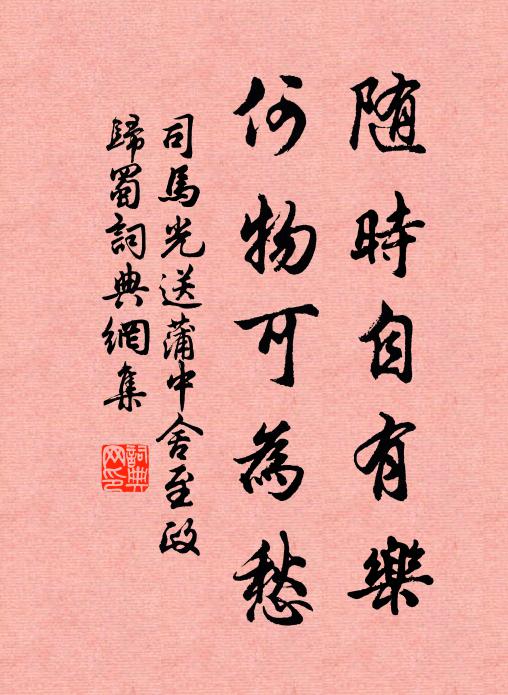 随時自有樂
何物可為愁
司馬光送蒲中舍至政
歸蜀詞典網集
詞典
网印